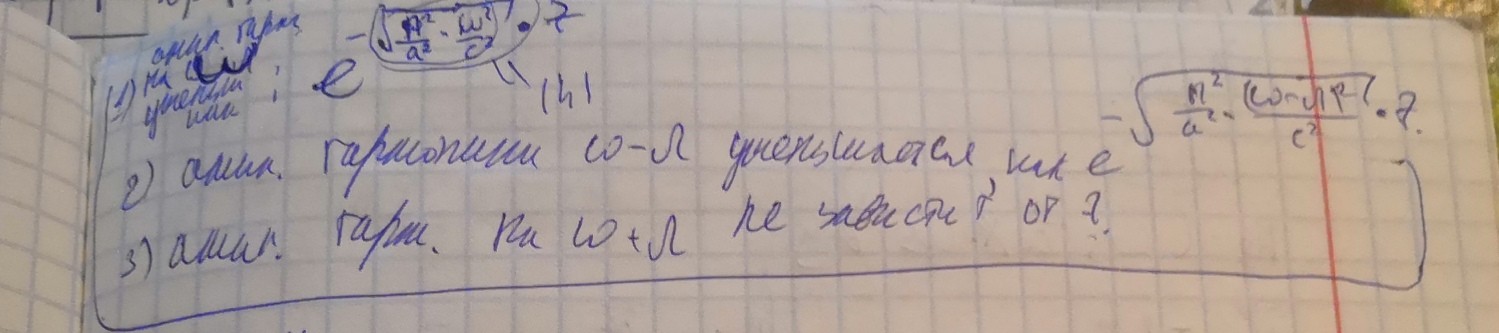 1) ампл. гарм. на ω уменьш. как : e^{-√(π²/a² - ω²/c²) · z}
|h|
2) ампл. гармоники ω-Ω уменьшается как e^{-√(π²/a² - (ω-Ω)²/c²) · z}.
3) ампл. гарм. на ω+Ω не зависит от z.